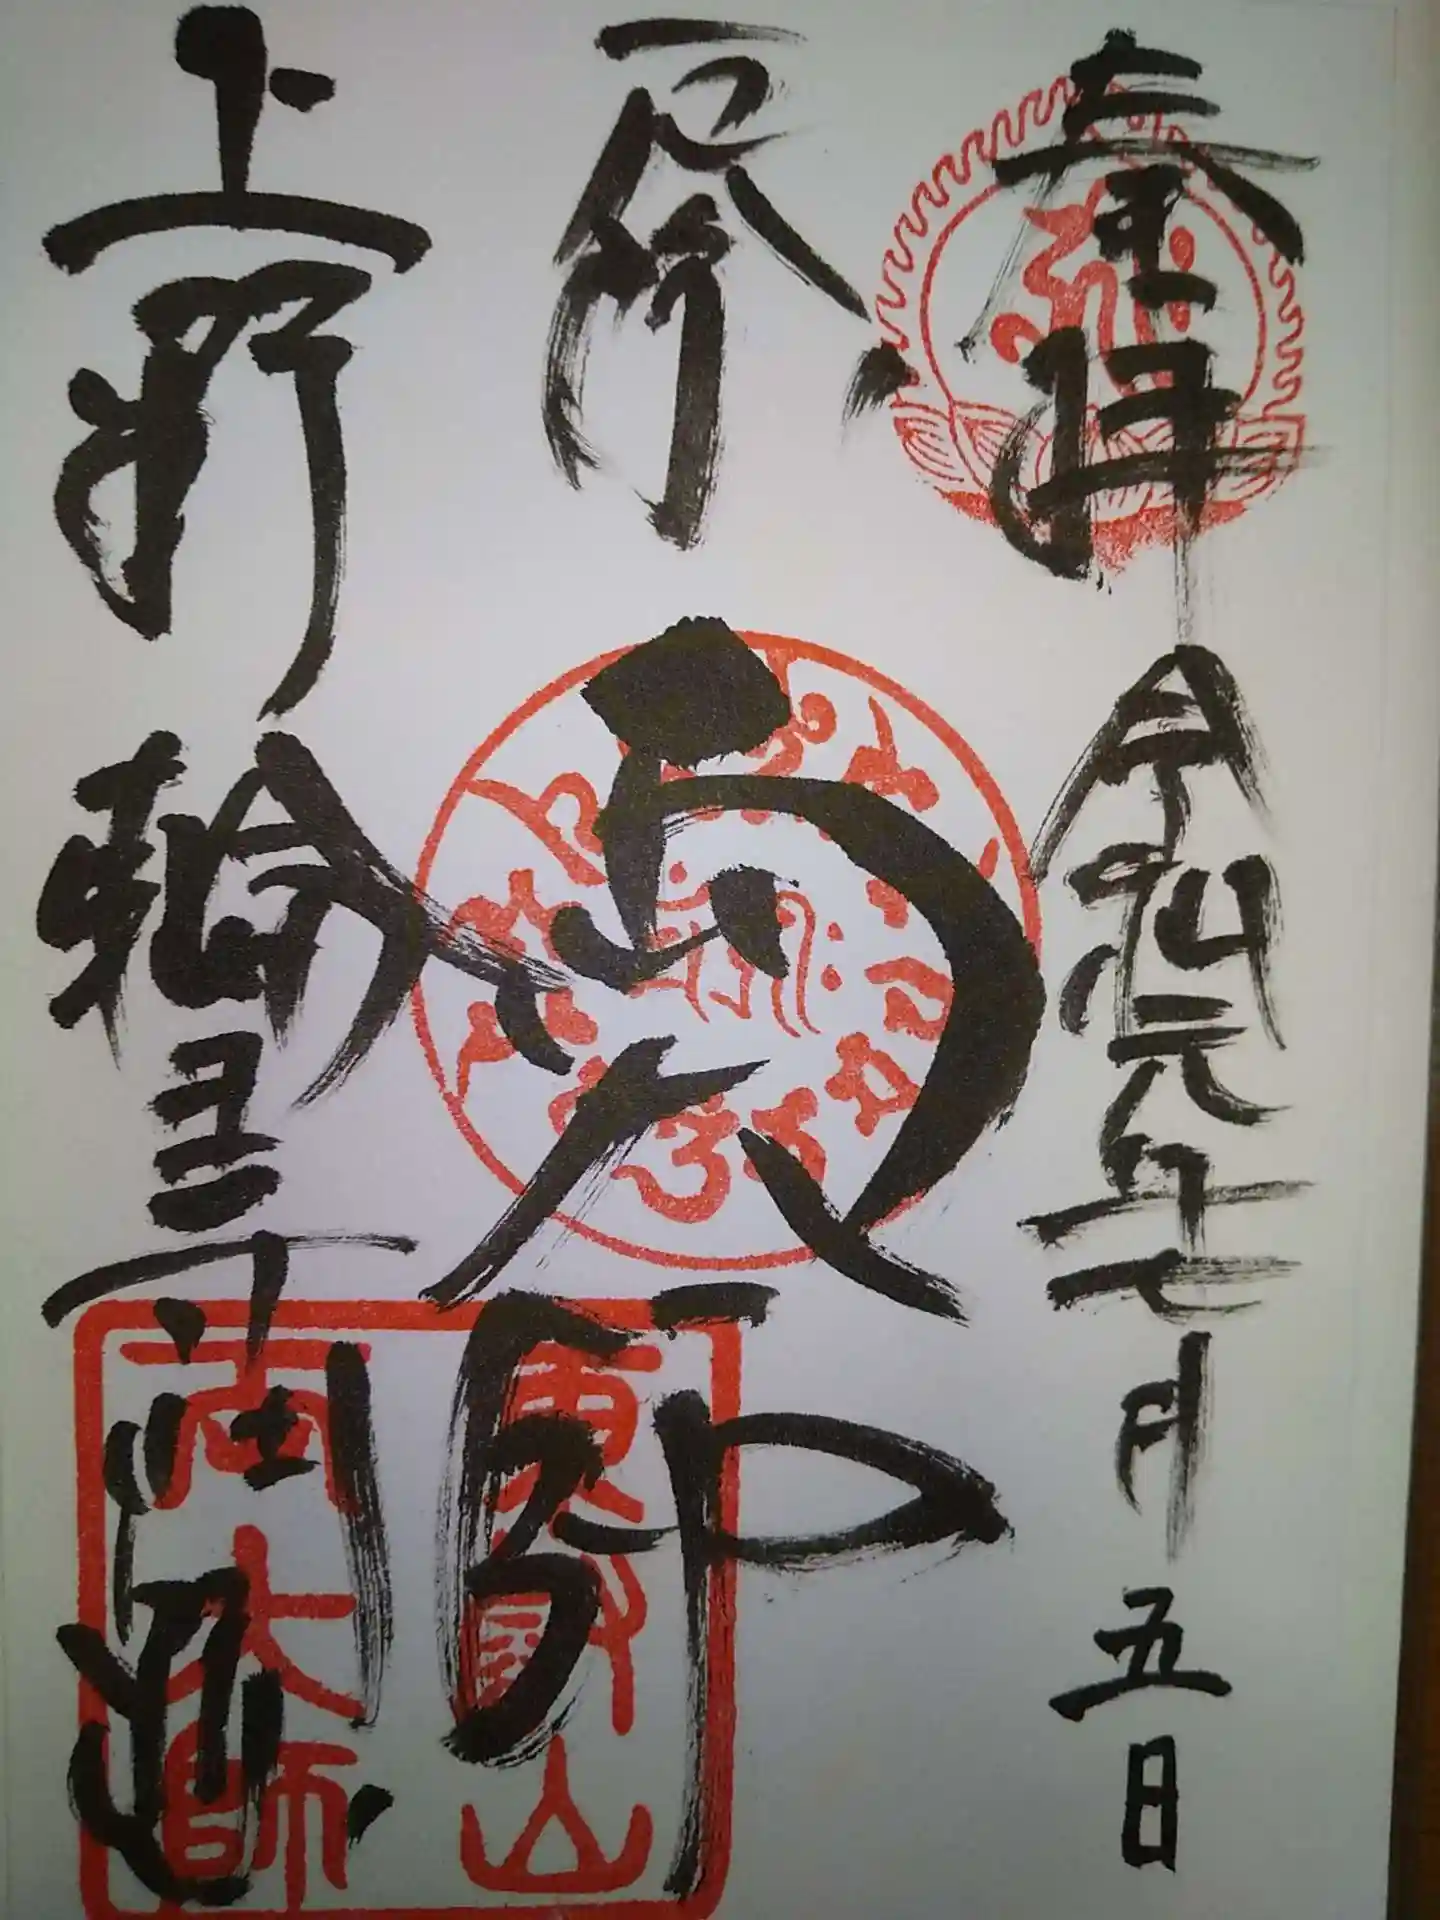 奉拝 令和元年七月五日
両大師
上野輪王寺門跡
東叡山
両大師